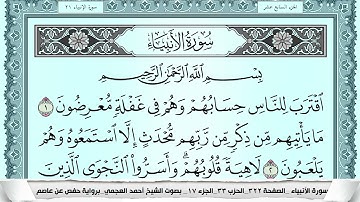 الجزء السابع عشر سورة الأنبياء ٢١
سُورَةُ الْأَنْبِيَاءِ
بِسْمِ اللَّهِ الرَّحْمَٰنِ الرَّحِيمِ
اقْتَرَبَ لِلنَّاسِ حِسَابُهُمْ وَهُمْ فِي غَفْلَةٍ مُّعْرِضُونَ ١
مَا يَأْتِيهِم مِّن ذِكْرٍ مِّن رَّبِّهِم مُّحْدَثٍ إِلَّا اسْتَمَعُوهُ وَهُمْ
يَلْعَبُونَ ٢ لَاهِيَةً قُلُوبُهُمْ وَأَسَرُّوا النَّجْوَى الَّذِينَ
سورة الأنبياء _ الصفحة ٣٢٢_ الحزب ٣٣_ الجزء ١٧_ بصوت الشيخ أحمد العجمي_ برواية حفص عن عاصم